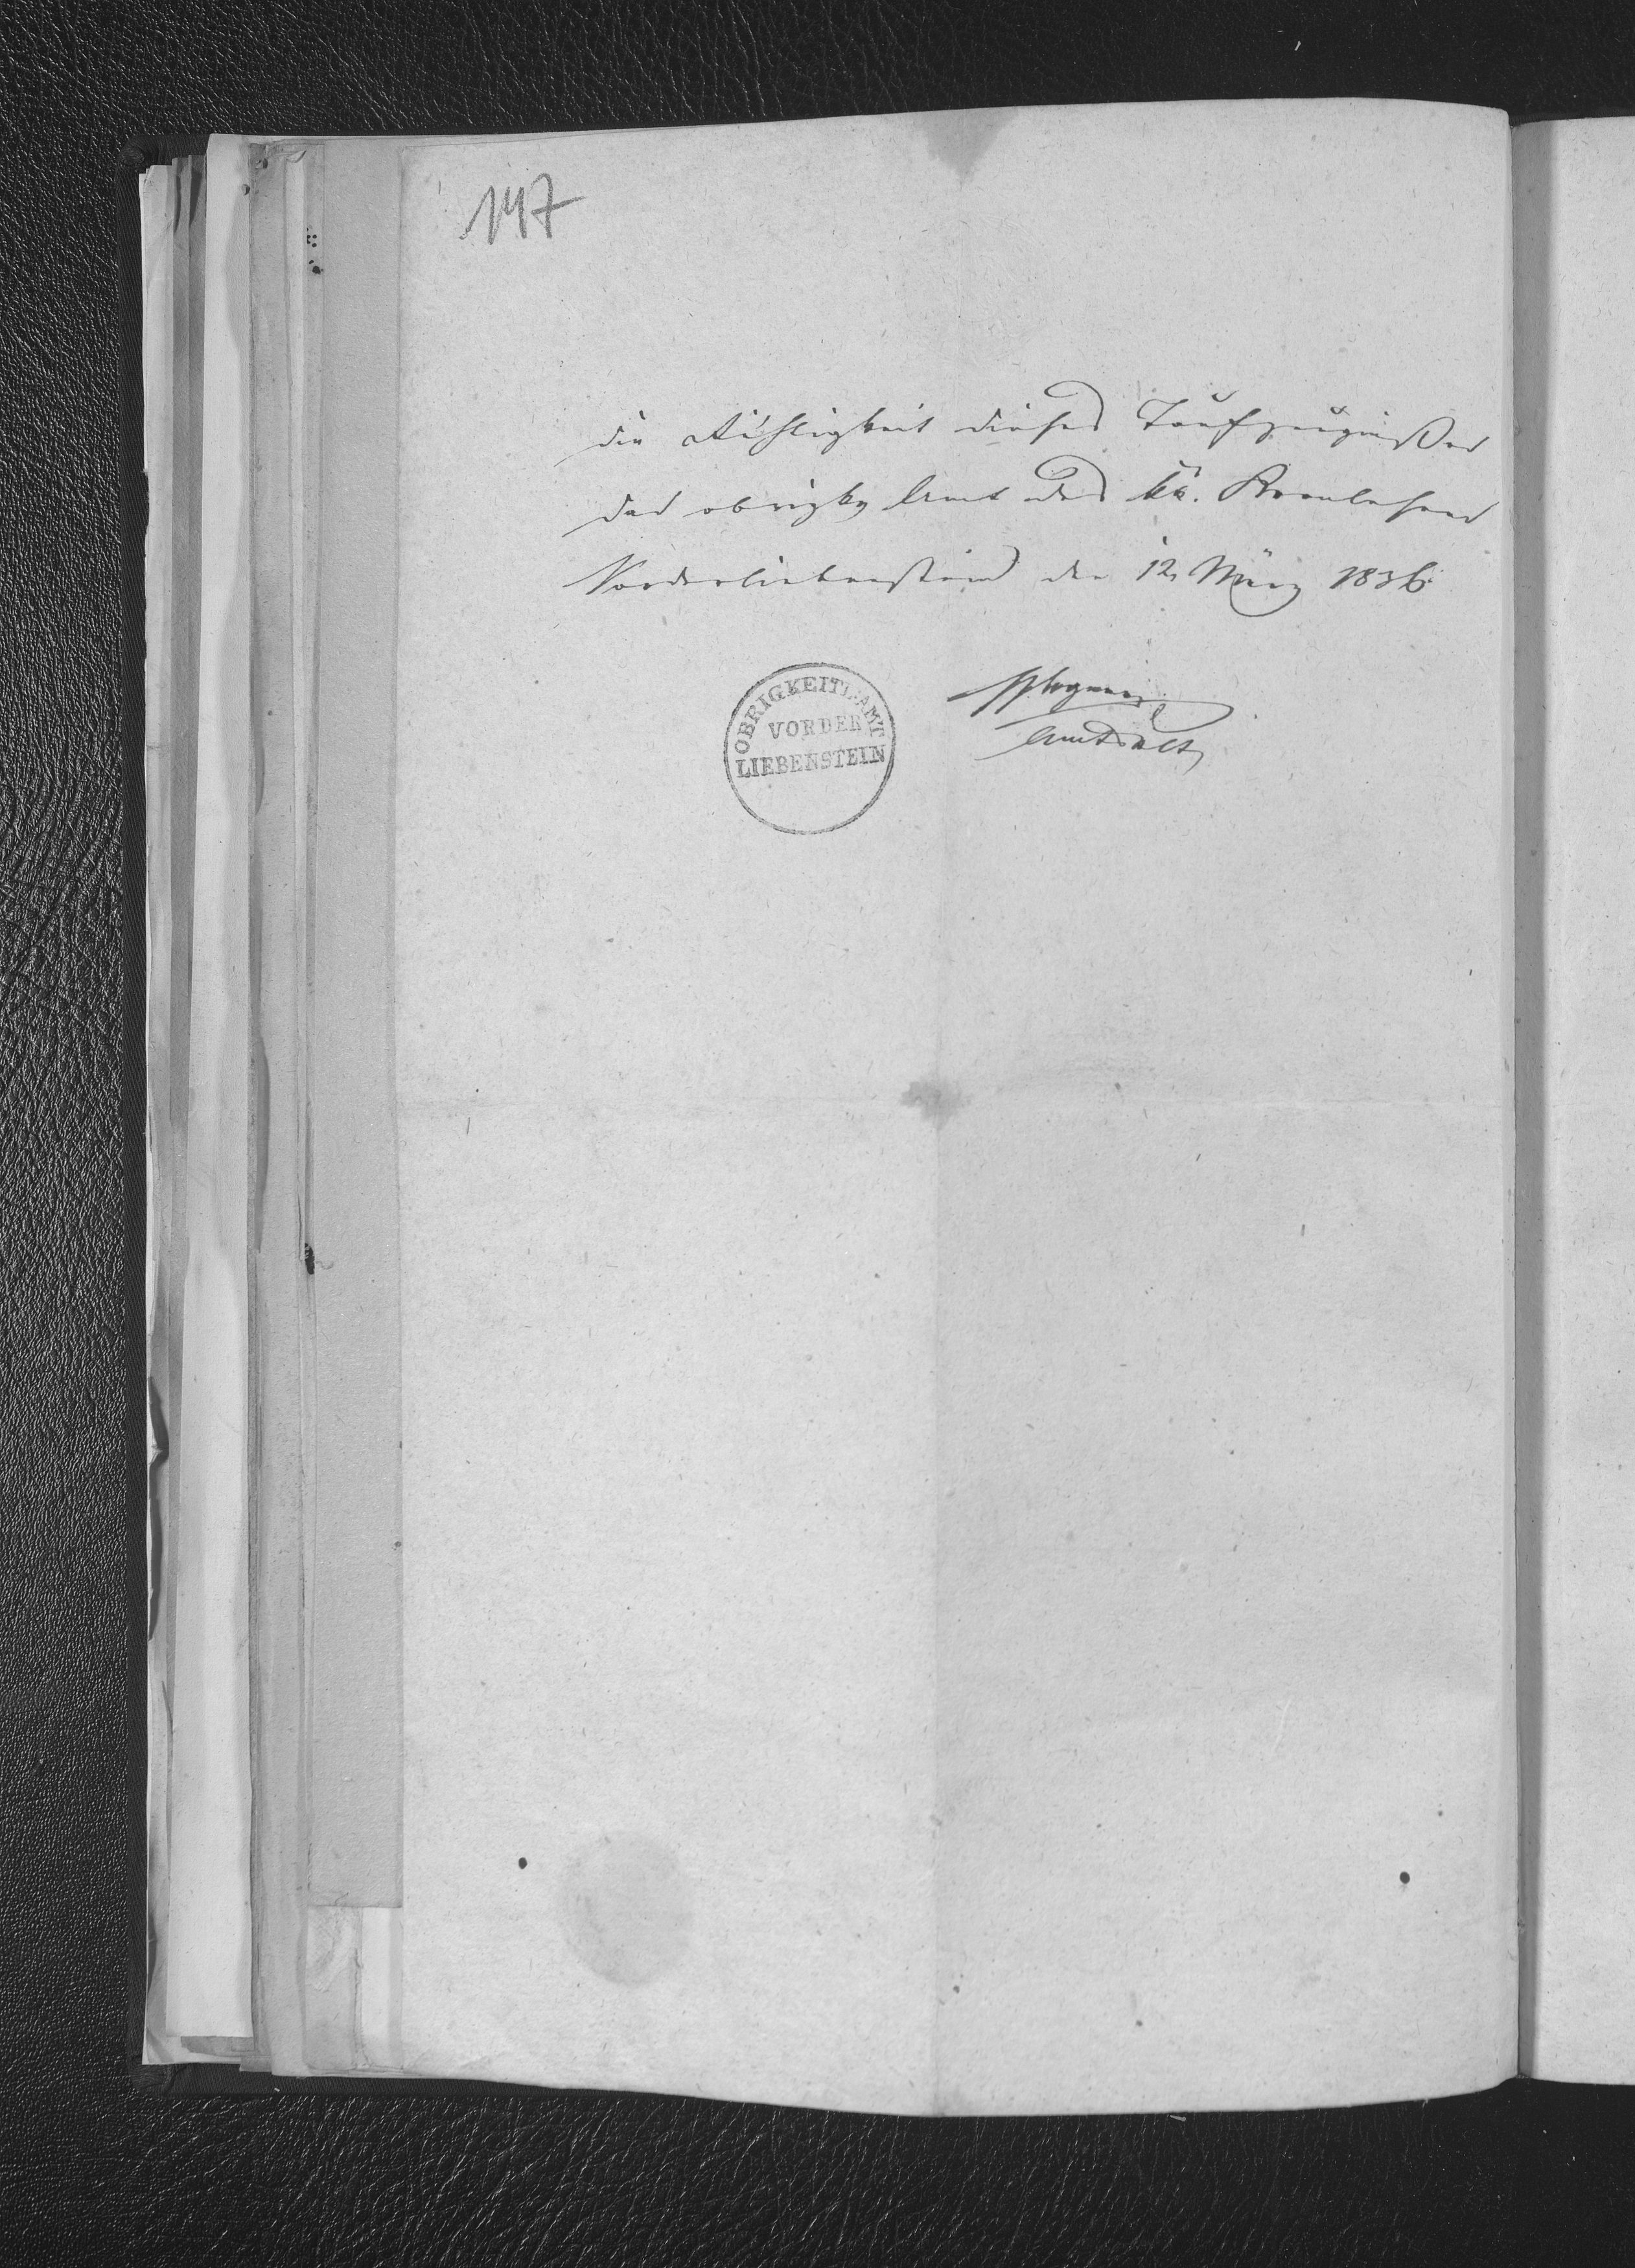 147
die Richtigkeit dieses Taufzeugnißes
das obrigk Amt des kk. Kronlehens
Vorderliebenstein den 12 März 1836
OBRIGKEITL. AMT
VORDER
LIEBENSTEIN